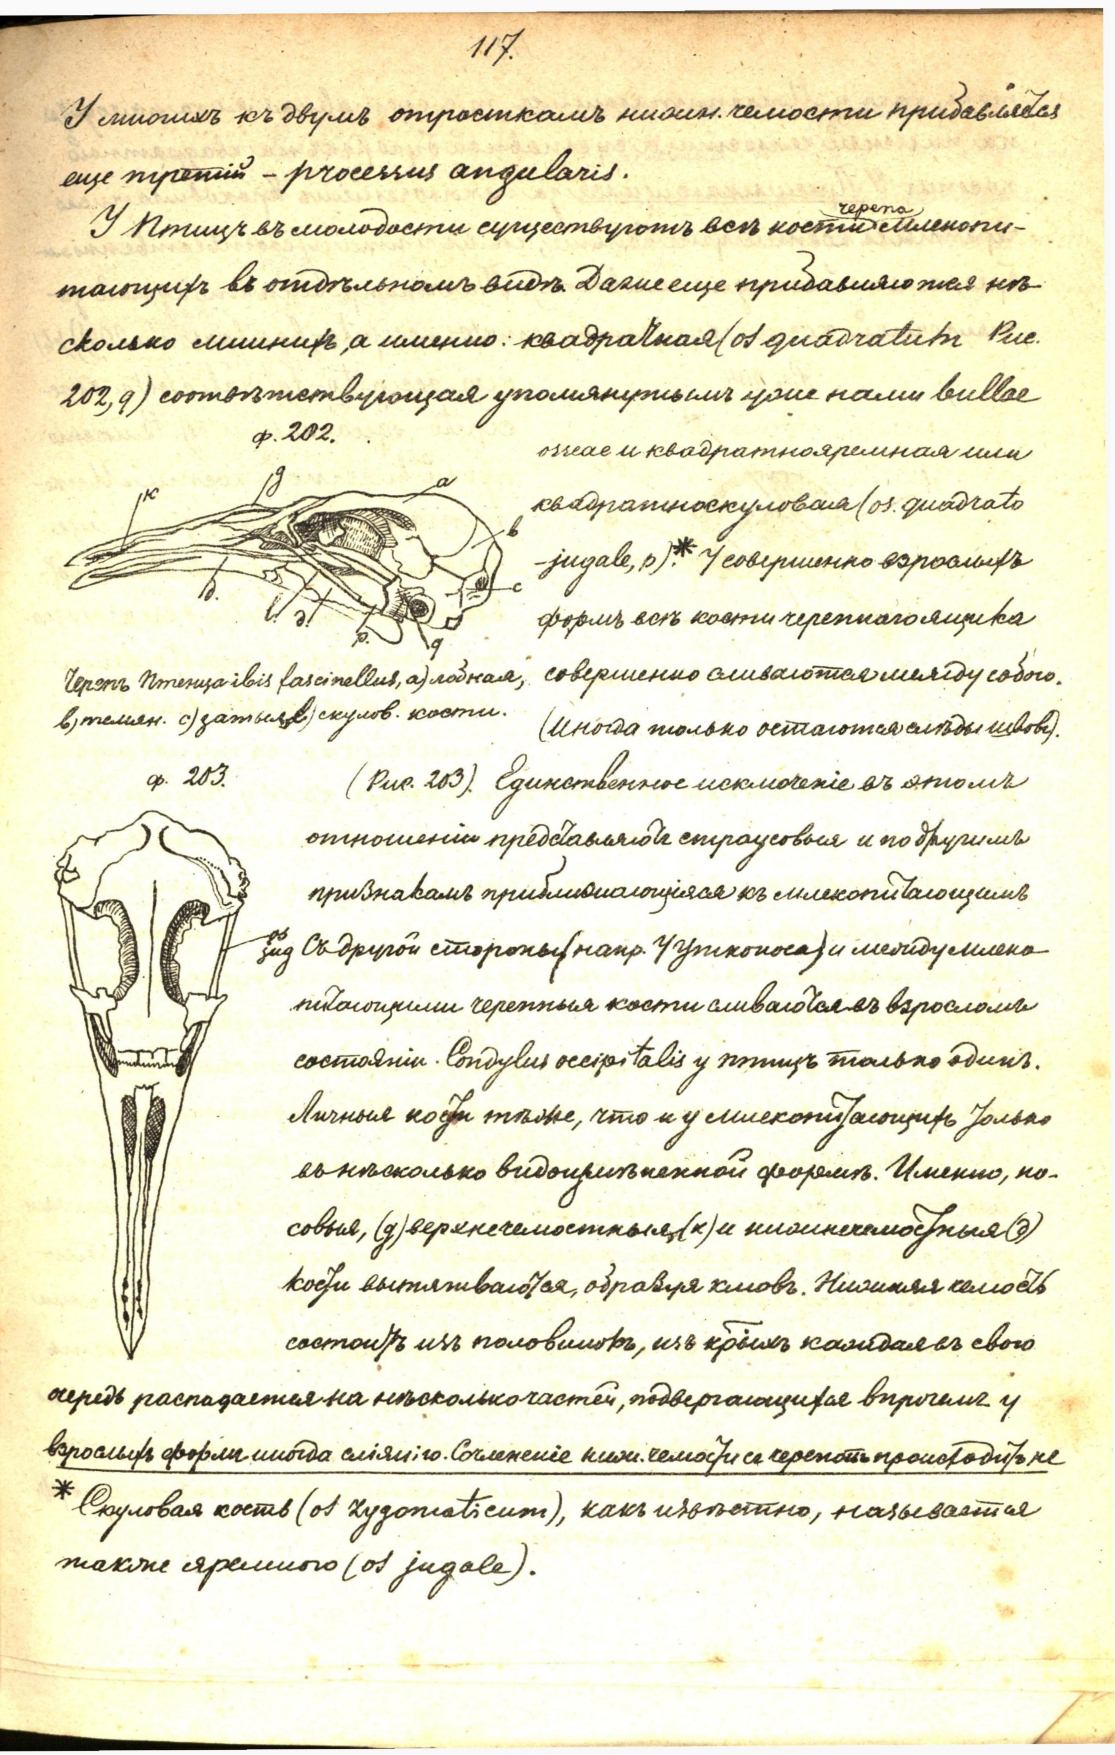 117.
У многихъ къ двумъ отросткамъ нижн. челюсти прибавляется
еще третій – processus angularis.
У Птицъ въ молодости существуютъ всѣ кости черепа Млекопи-
тающихъ въ отдѣльномъ видѣ. Даже еще прибавляются нѣ-
сколько лишнихъ, а именно: квадратная (os quadratum Рис.
202, q) соотвѣтствующая упомянутымъ уже нами bullae
ф. 202.
osseae и квадратнояремная или
квадратноскуловая (os. quadrato
-jugale, p).* У совершенно взрослыхъ
формъ всѣ кости черепнаго ящика
совершенно сливаются между собою.
(Иногда только остаются слѣды швовъ).
к
g
a
b
c
d.
l.
э.
p.
q
Черепъ Птенца ibis fascinellus, a) лобная,
b) темян. c) затыл, l) скулов. кости.
ф. 203.
(Рис. 203). Единственное исключеніе въ этомъ
отношеніи представляютъ страусовыя и по другимъ
признакамъ приближающіяся къ млекопитающимъ
os
jug
Съ другой стороны (напр. У Утконоса) и между млеко
питающими черепныя кости сливаются въ взросломъ
состояніи. Condylus occipitalis у птицъ только одинъ.
Личныя кости тѣже, что и у млекопитающихъ только
въ нѣсколько видоизмѣненной формѣ. Именно, но-
совыя, (g) верхнечелюстныя, (к) и нижнечелюстныя (д)
кости вытягиваются, образуя клювъ. Нижняя челюсть
состоитъ изъ половинокъ, изъ крыхъ каждая въ свою
очередь распадается на нѣсколько частей, подвергающихся впрочемъ у
взрослыхъ формъ иногда сліянію. Сочлененіе нижн. челюсти съ черепомъ происходитъ не
* Скуловая кость (os zygomaticum), какъ извѣстно, называется
также яремною (os jugale).